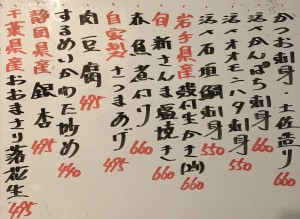 かつお刺身 土佐造り 660
活〆かんぱち刺身 660
活〆オオモンハタ刺身 550
活〆石垣鯛刺身 550
岩手県産殻付生かき(凶) 660
旬新さんま塩焼き 660
赤魚煮付け 660
自家製さつまあげ 495
肉豆腐 495
するめいかわた炒め 440
静岡県産銀杏 495
千葉県産おおまさり落花生 495